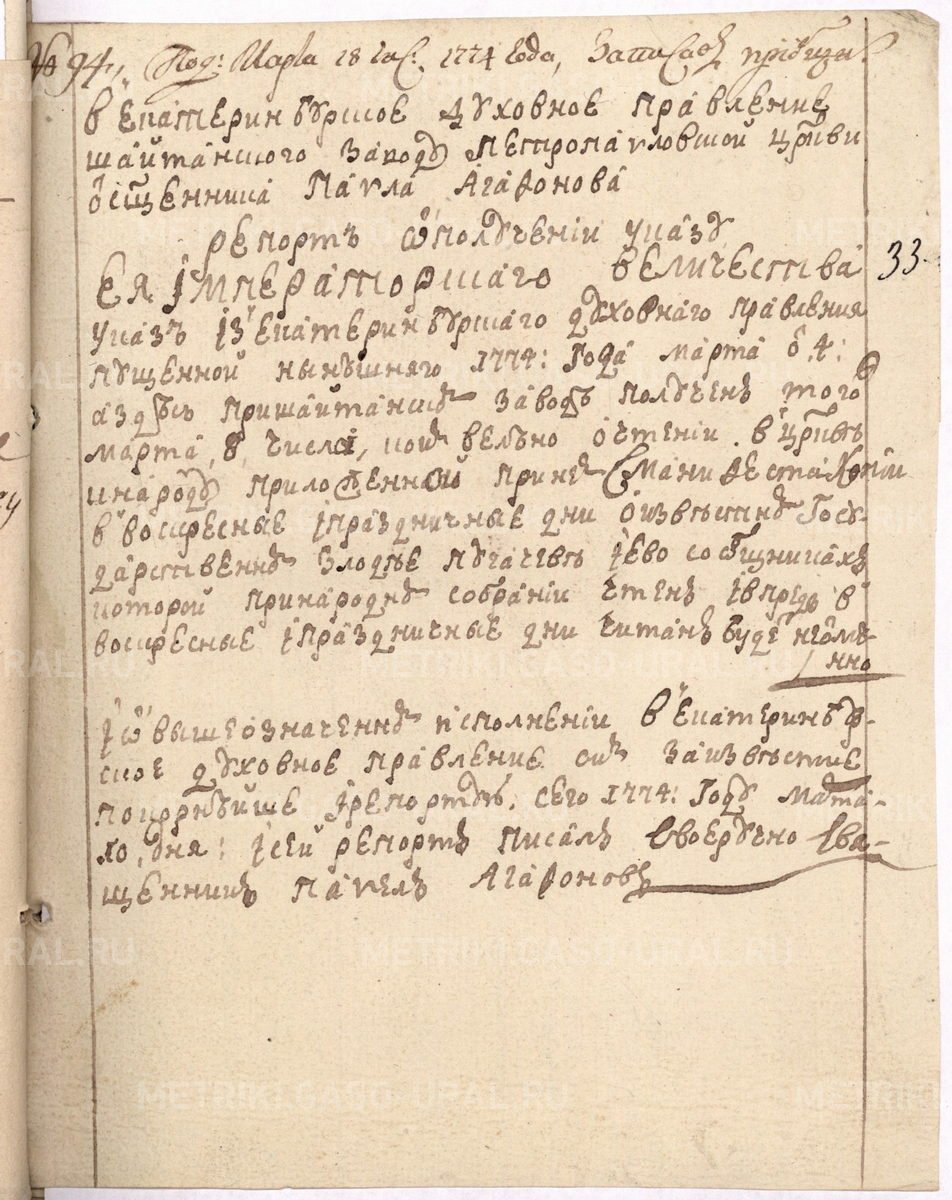 № 94, Под: Марта 18 чис: 1774 года, Записав
вЪ Екатеринбурское духовное правление
шайтанского заводу Петропавловской цркви
о священника Павла Агафонова
репортъ о полученіи указу
Ея Iмператорскаго величества
33.
указъ iзъ Екатеринбурскаго духовнаго правления
пущенной нынешняго 1774: года марта 4:
а здесь при шайтанскомъ заводе полученъ того
марта, 8, числа, коимъ велено о чтеніи въ цркве
и народу приложенной при немъ с манифеста копіи
въ воскресные iпраздничные дни о известномъ Госу-
дарственномъ злодее пугачеве iево сообщникахъ
которой при народномъ собраніи чтенъ iвпредь в
воскресные iпраздничные дни читанъ будетъ
нно
iо вышеозначенномъ исполненіи в Екатеринбур-
ское духовное правление симъ за известие
покорнейше iрепортую. сего 1774: Году марта-
дня: iсей репортъ писалъ своеручно свя-
щенникъ Павелъ Агафоновъ
METRIKI.GASO-URAL.RU